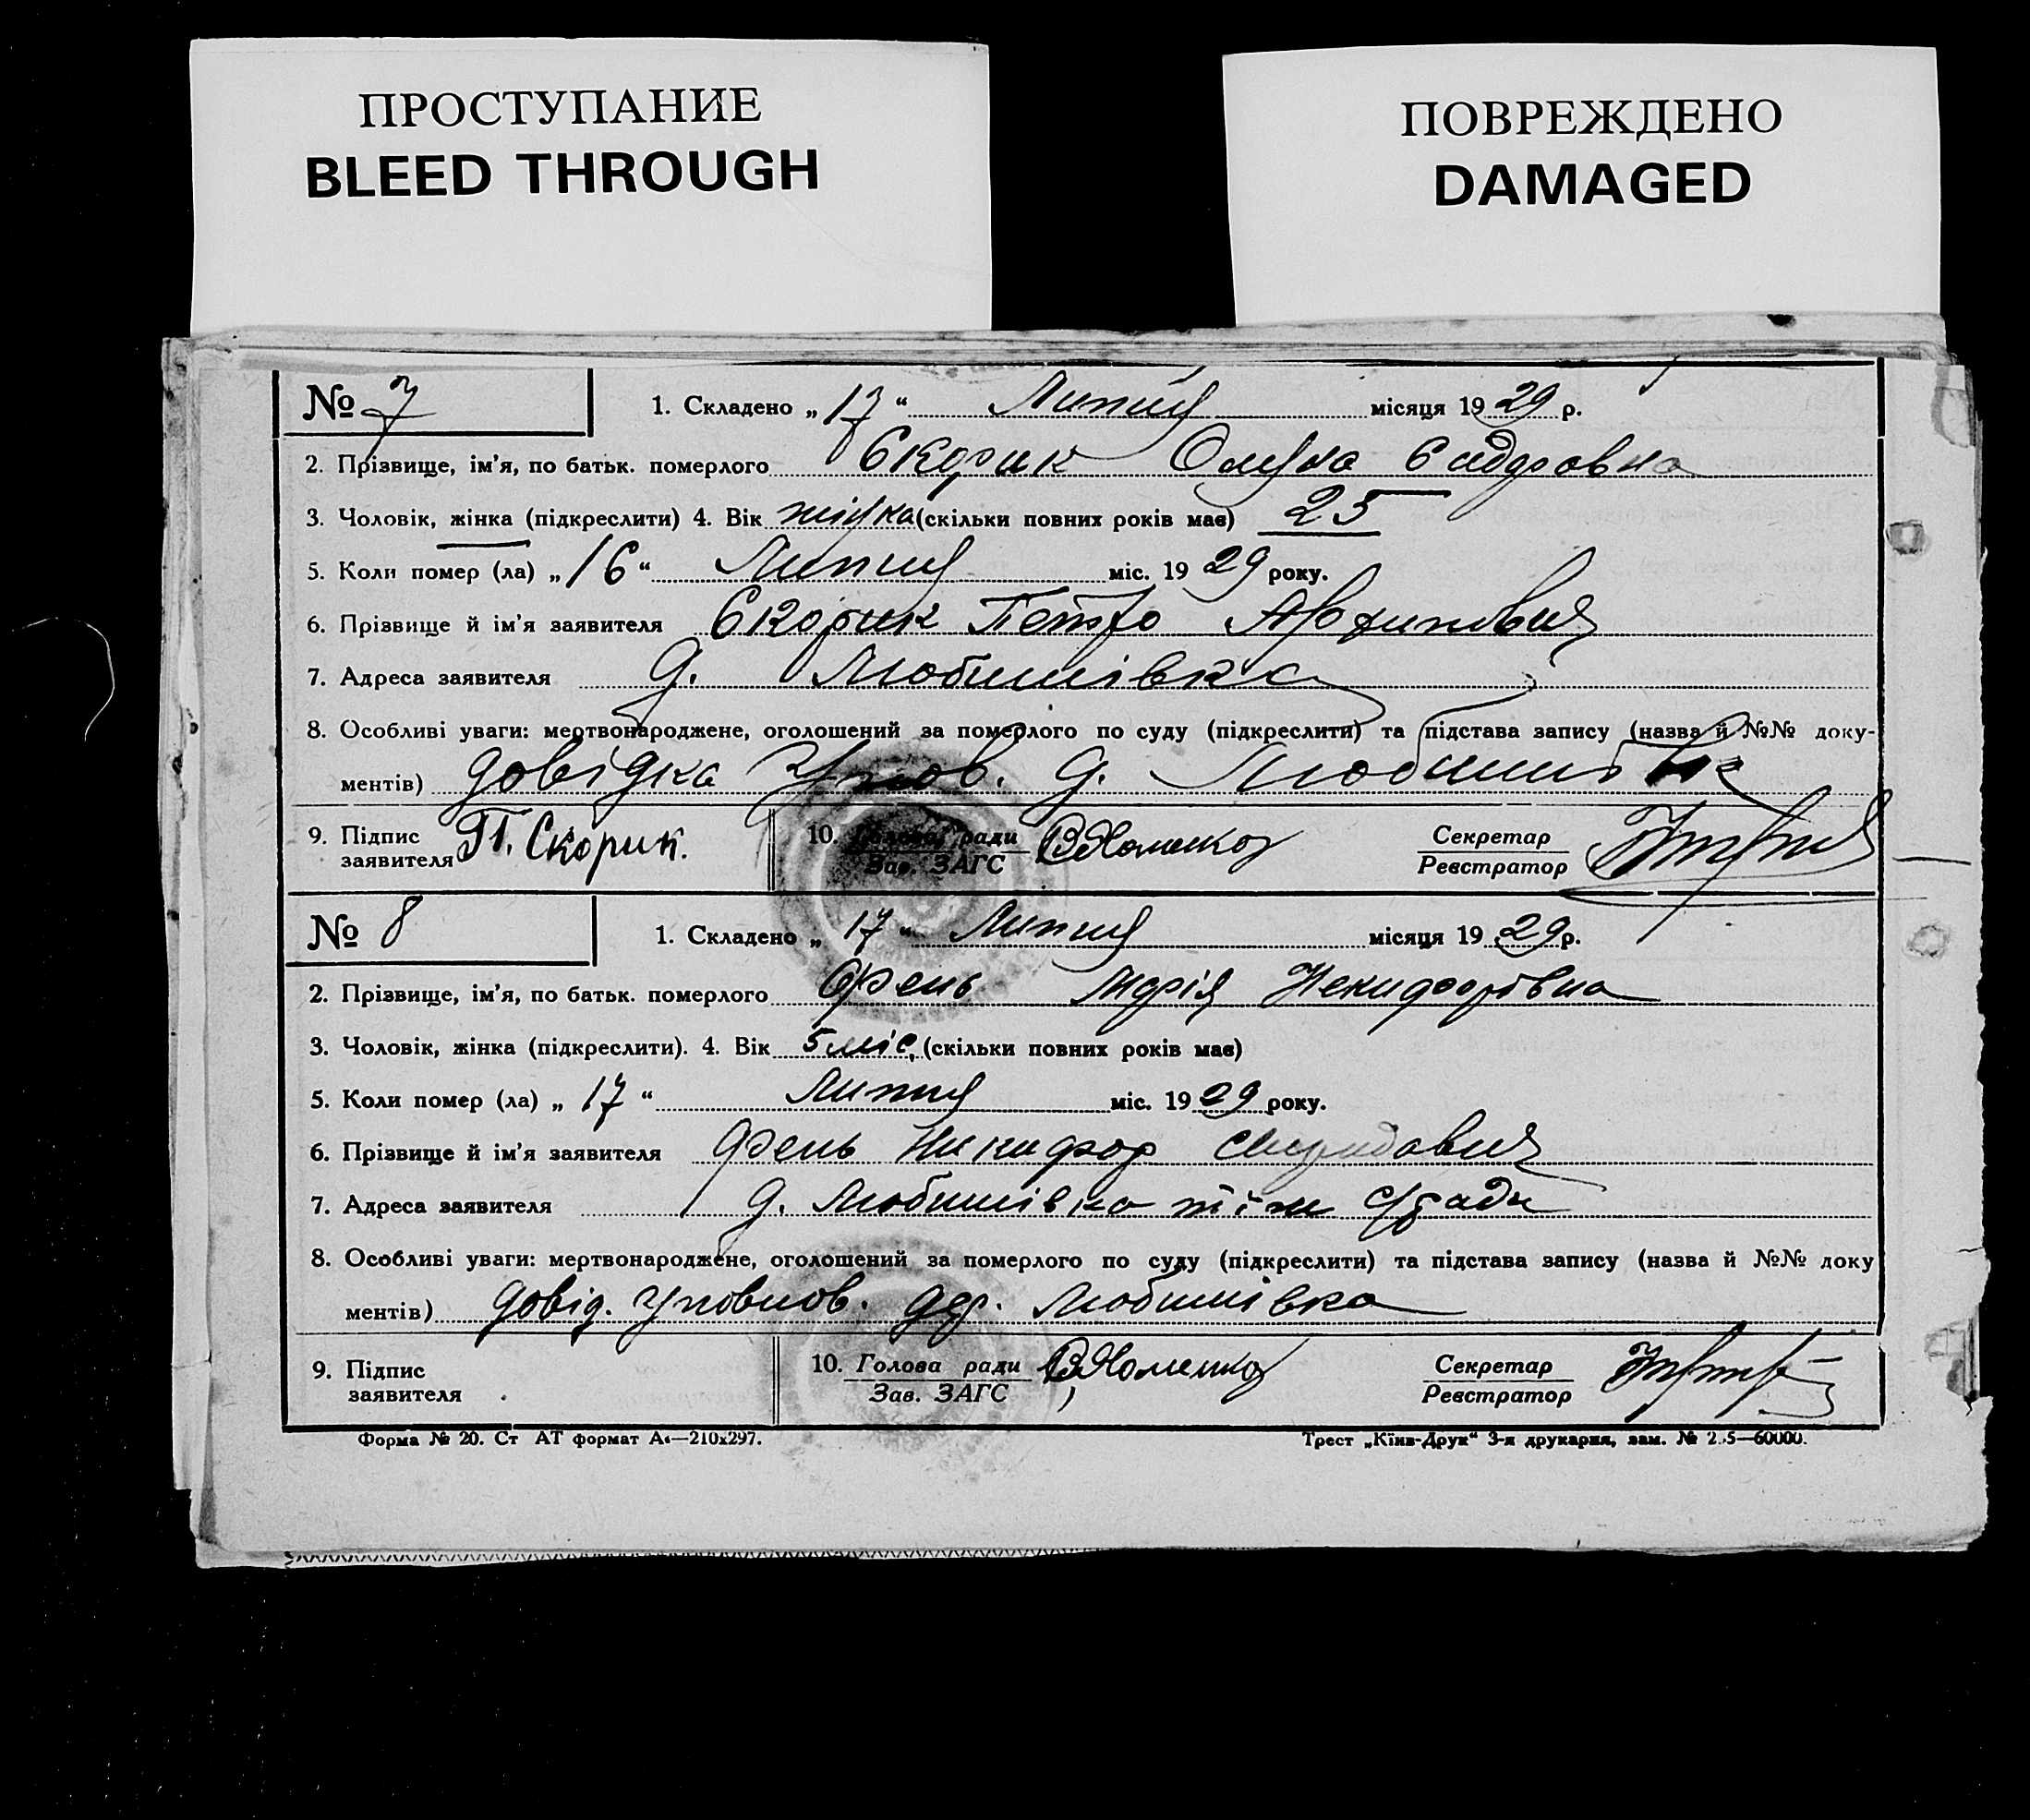 ПРОСТУПАНИЕ
BLEED THROUGH
ПОВРЕЖДЕНО
DAMAGED
№ 7 1. Складено „17“ Липня місяця 1929 р.
2. Прізвище, ім'я, по батьк. померлого Скорик Олена Сидровна
3. Чоловік, жінка (підкреслити) 4. Вік жінка (скільки повних років має) 25
5. Коли помер (ла) „16“ Липня міс. 1929 року.
6. Прізвище й ім'я заявителя Скорик Петро Архипович
7. Адреса заявителя д. Любимівка
8. Особливі уваги: мертвонароджене, оголошений за померлого по суду (підкреслити) та підстава запису (назва й №№ доку-
ментів) довідка Упов. д.
9. Підпис заявителя П. Скорик. 10. Голова ради Зав. ЗАГС Секретар Реєстратор
№ 8 1. Складено „17“ Липня місяця 1929 р.
2. Прізвище, ім'я, по батьк. померлого Фень Марія Некифорівна
3. Чоловік, жінка (підкреслити). 4. Вік 5 міс. (скільки повних років має)
5. Коли помер (ла) „17“ Липня міс. 1929 року.
6. Прізвище й ім'я заявителя Фень Никифор
7. Адреса заявителя д. Любимівка тіж с/ради
8. Особливі уваги: мертвонароджене, оголошений за померлого по суду (підкреслити) та підстава запису (назва й №№ доку
ментів) довід. уповнов. дер. Любимівка
9. Підпис заявителя 10. Голова ради Зав. ЗАГС Секретар Реєстратор
Форма № 20. Ст АТ формат А4—210х297. Трест „Київ-Друк“ 3-я друкарня, зам. №